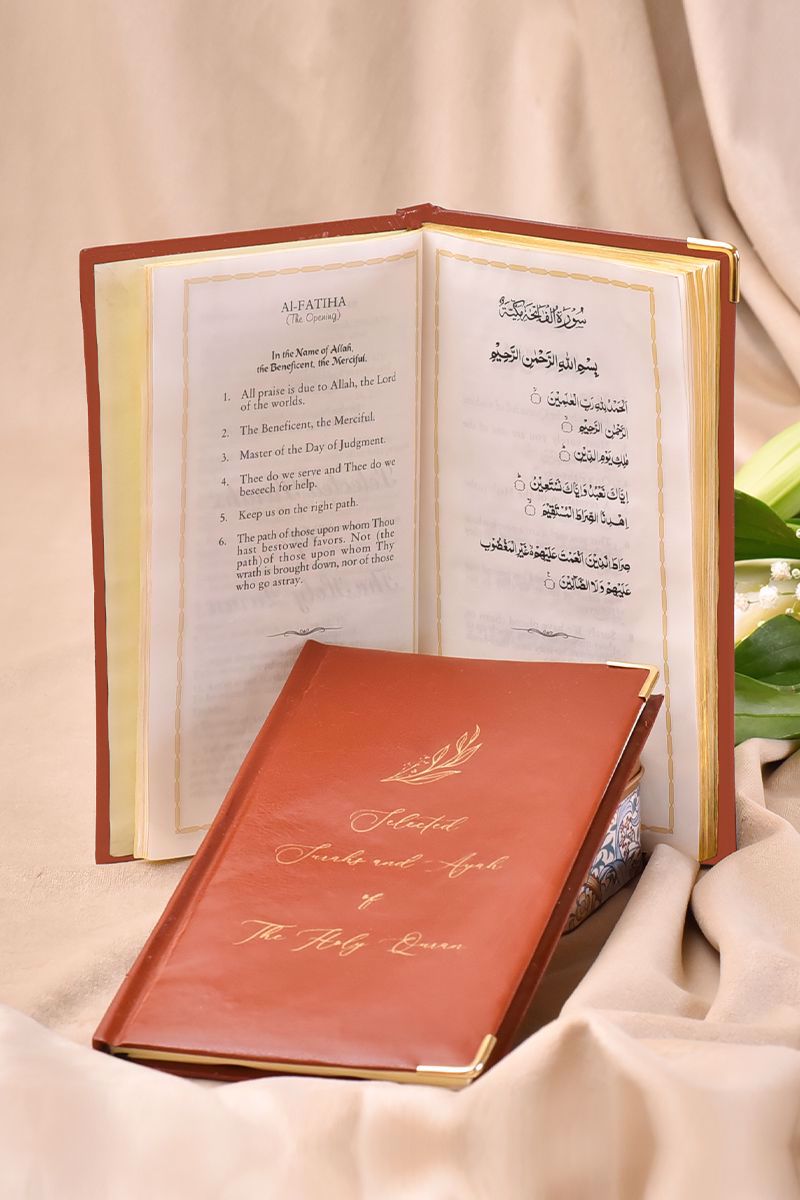 Al-FATIHA
(The Opening)
In the Name of Allah,
the Beneficent, the Merciful.
1. All praise is due to Allah, the Lord
of the worlds.
2. The Beneficent, the Merciful.
3. Master of the Day of Judgment.
4. Thee do we serve and Thee do we
beseech for help.
5. Keep us on the right path.
6. The path of those upon whom Thou
hast bestowed favors. Not (the
path) of those upon whom Thy
wrath is brought down, nor of those
who go astray.
سُوْرَةُ الْفَاتِحَةِ مَكِّيَّةٌ
بِسْمِ اللهِ الرَّحْمٰنِ الرَّحِيْمِ
اَلْحَمْدُ لِلّٰهِ رَبِّ الْعٰلَمِيْنَ
الرَّحْمٰنِ الرَّحِيْمِ
مٰلِكِ يَوْمِ الدِّيْنِ
اِيَّاكَ نَعْبُدُ وَاِيَّاكَ نَسْتَعِيْنُ
اِهْدِنَا الصِّرَاطَ الْمُسْتَقِيْمَ
صِرَاطَ الَّذِيْنَ اَنْعَمْتَ عَلَيْهِمْ غَيْرِ الْمَغْضُوْبِ
عَلَيْهِمْ وَلَا الضَّآلِّيْنَ
Selected
Surahs and Ayah
of
The Holy Quran